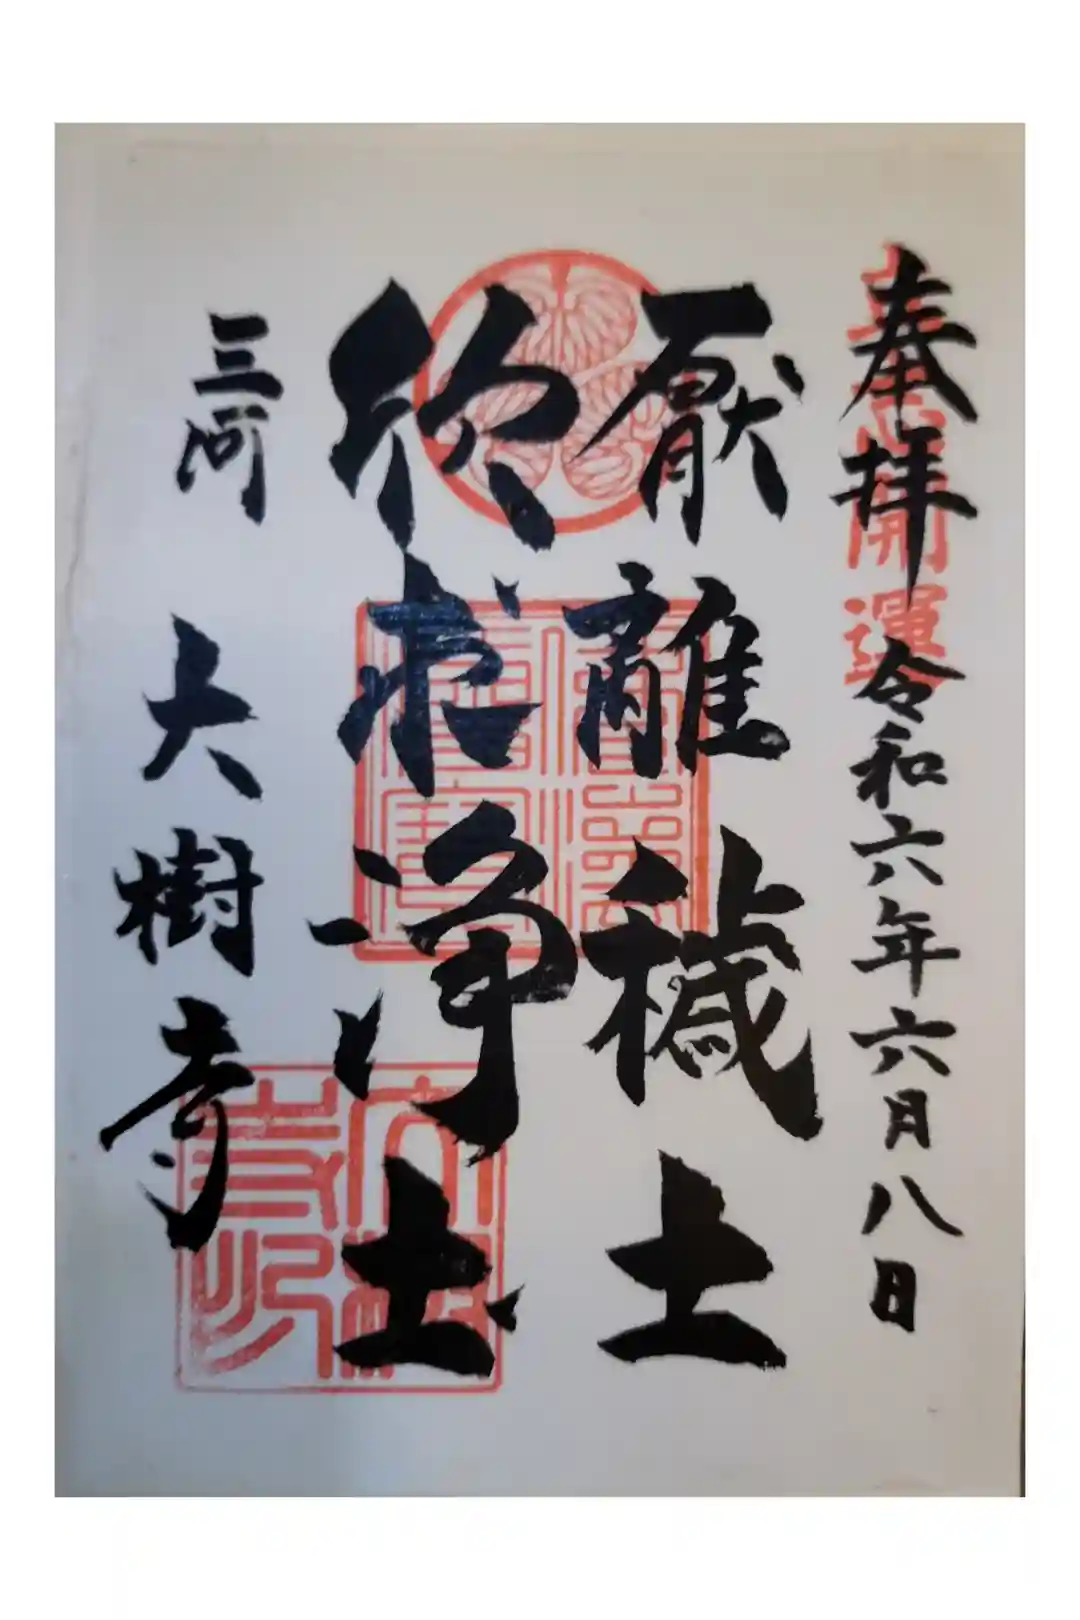 奉拝 令和六年六月八日
開運
厭離穢土
欣求浄土
三河 大樹寺